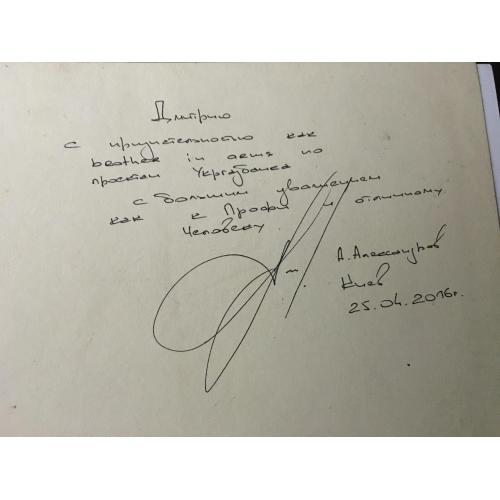 Дмитрию
с признательностью как
brother in arms по
проектам Укргазбанка
с большим уважением
как к Профи и отличному
Человеку
А. Александров
Киев
25.04.2016г.